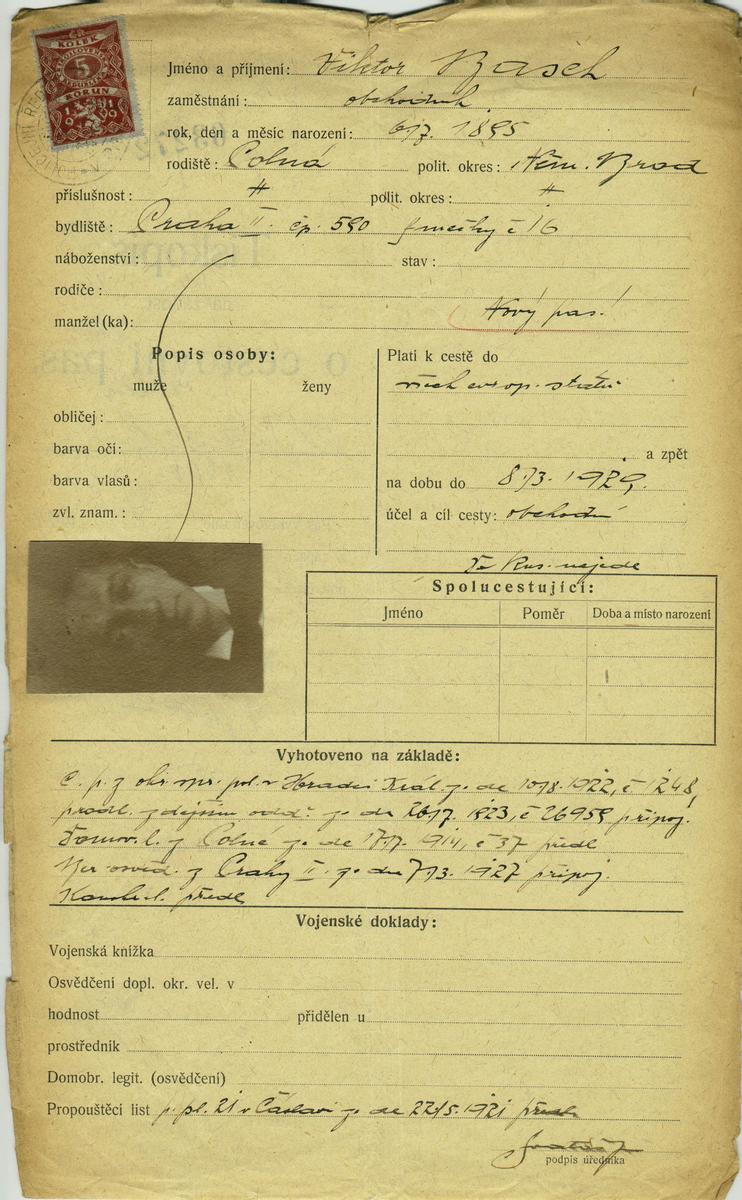 KOLEK
5
KORUN
1919
Jméno a příjmení: Viktor Basch
zaměstnání: obchodník
rok, den a měsíc narození: 6/7. 1895
rodiště: Polná polit. okres: Něm. Brod
příslušnost: " polit. okres: "
bydliště: Praha II. čp. 590 Smečky č 16
náboženství: stav:
rodiče:
manžel (ka): Nový pas!
Popis osoby: Platí k cestě do
muže ženy všech evrop. států
obličej:
barva očí: a zpět
barva vlasů: na dobu do 8./3. 1929.
zvl. znam.: účel a cíl cesty: obchodní
Do Rus. nejede
Spolucestující:
Jméno Poměr Doba a místo narození
Vyhotoveno na základě:
C. p. z okr. spr. pol. v Hradci Král. ze dne 10/8. 1922, č 1248,
prodl. zdejším odd. ze dne 26/7. 1923, č 26959 připoj.
Domov. l. z Polné ze dne 17/7. 1914, č 37 předl
osvěd. z Prahy II. ze dne 7/3. 1927 připoj.
předl
Vojenské doklady:
Vojenská knížka
Osvědčení dopl. okr. vel. v
hodnost přidělen u
prostředník
Domobr. legit. (osvědčení)
Propouštěcí list p. pl. 21 v Čáslavi ze dne 22/5. 1921 předl
podpis úředníka